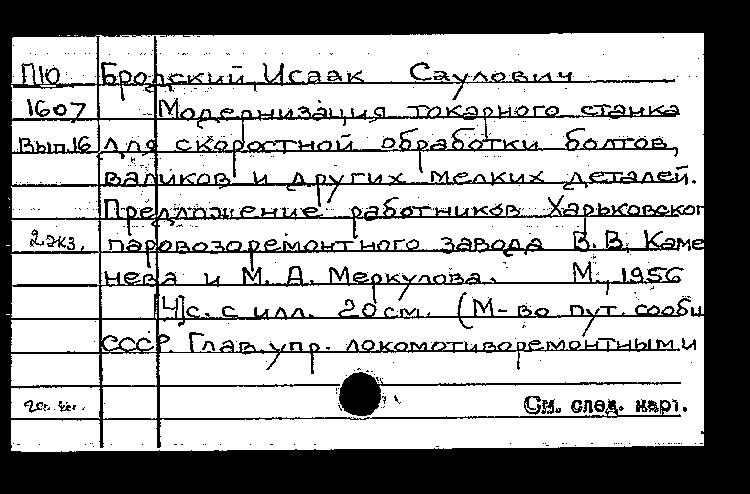 П10 Бродский, Исаак Саулович
1607 Модернизация токарного станка
Вып.16 для скоростной обработки болтов,
валиков и других мелких деталей.
Предложение работников Харьковског
2 экз. паровозоремонтного завода В. В. Каме
нева и М. Д. Меркулова. М., 1956
[4]с. с илл. 20 см. (М-во пут. сообщ
СССР. Глав. упр. локомотиворемонтными
См. след. карт.